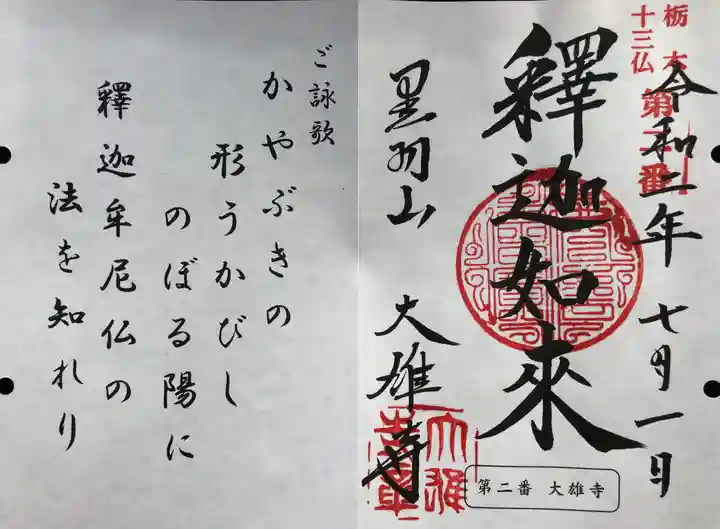 栃木
十三仏
第二番
令和二年七月一日
釋迦如來
黒羽山
大雄寺
第二番 大雄寺
ご詠歌
かやぶきの
形うかびし
のぼる陽に
釋迦牟尼仏の
法を知れり